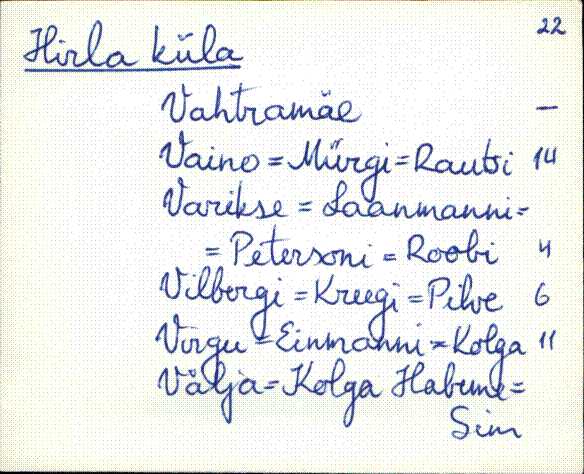 22
Hirla küla
Vahtramäe —
Vaino = Mürgi = Rautsi 14
Varikse = Laanmanni =
= Petersoni = Roobi 4
Vilbergi = Kreegi = Pilve 6
Virgu = Einmanni = Kolga 11
Välja = Kolga Habune =
Sim